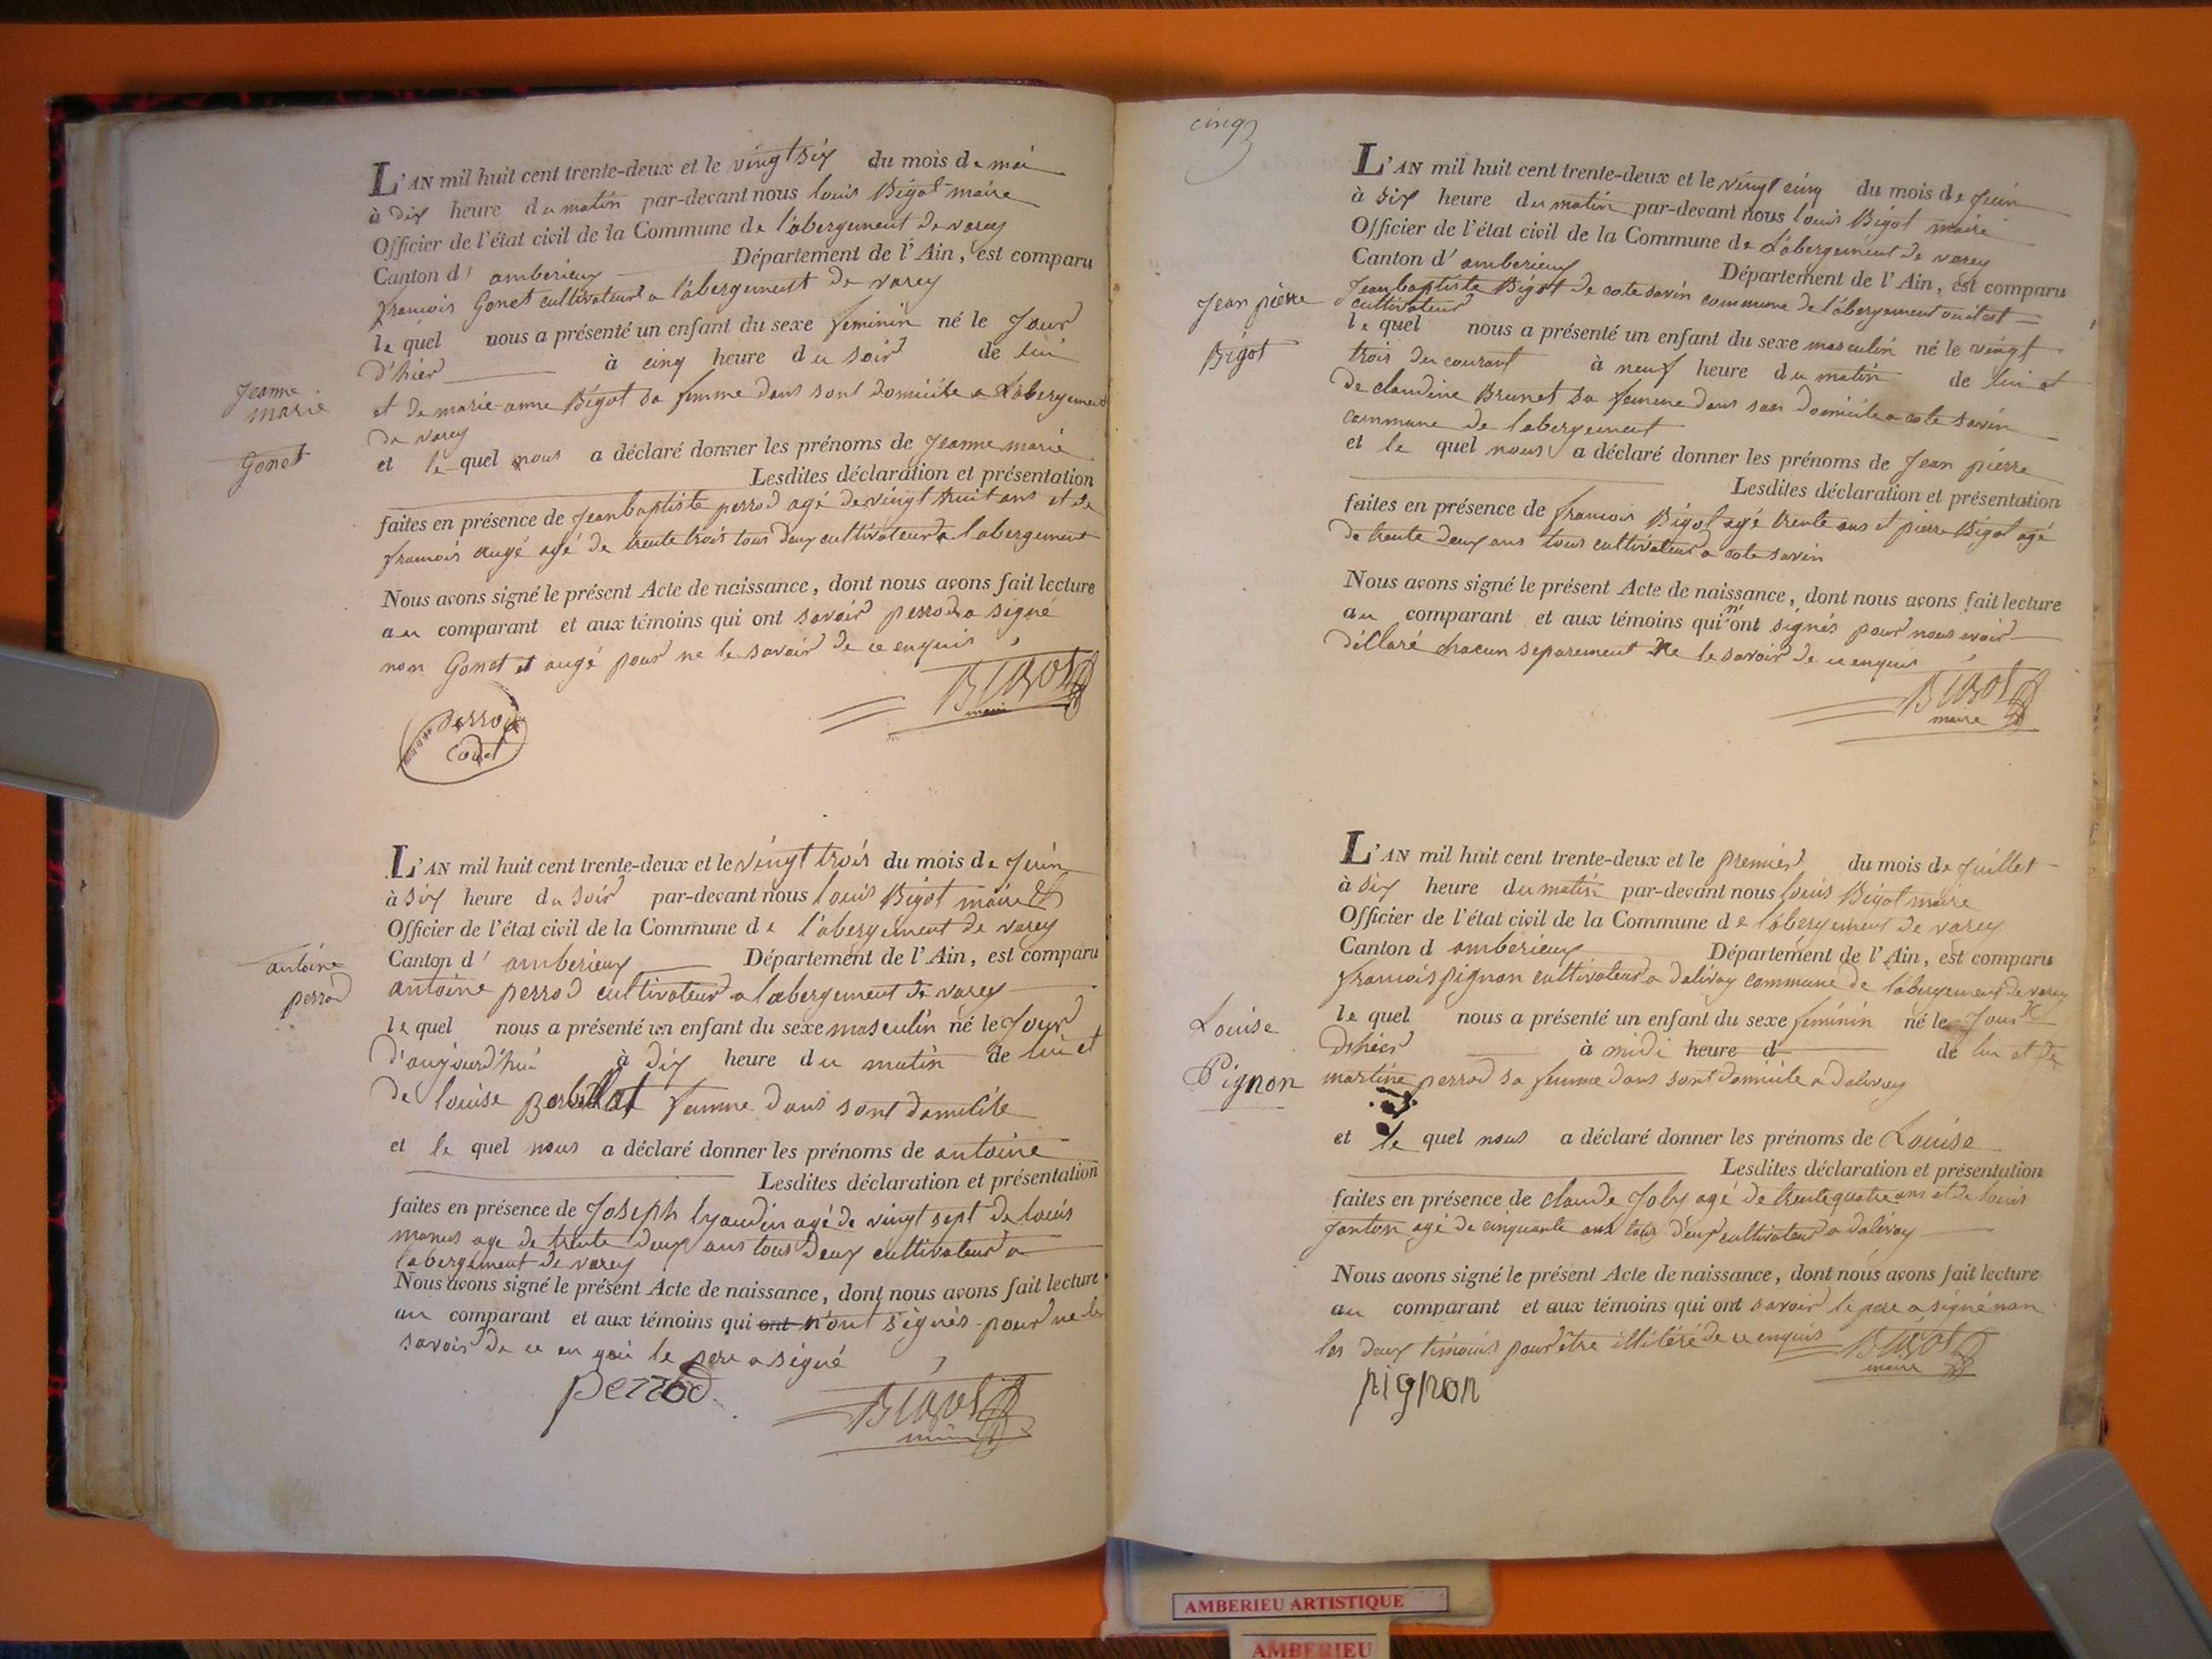 L'AN mil huit cent trente-deux et le vingt six du mois de mai
à dix heure du matin par-devant nous louis Bigot maire
Officier de l'état civil de la Commune de l'abergement de varey
Canton d' amberieux Département de l'Ain, est comparu
francois Gonet cultivateur a l'abergement de varey
le quel nous a présenté un enfant du sexe feminin né le Jour
d'hier à cinq heure du soir de lui
et de marie anne Bigot sa femme dans sont domicile a Labergement
de varey
et le quel nous a déclaré donner les prénoms de Jeanne marie
Lesdites déclaration et présentation
faites en présence de Jean baptiste perrod agé de vingt huit ans et de
francois augé agé de trente trois tous deux cultivateur a labergement
Nous avons signé le présent Acte de naissance, dont nous avons fait lecture
au comparant et aux témoins qui ont savoir perrod a signé
non Gonet et augé pour ne le savoir de ce enquis
Jeanne
marie
Gonet
BIGOT
maire
perrod
cadet
L'AN mil huit cent trente-deux et le vingt trois du mois de Juin
à six heure du soir par-devant nous louis Bigot maire
Officier de l'état civil de la Commune de l'abergement de varey
Canton d' amberieux Département de l'Ain, est comparu
antoine perrod cultivateur a labergement de varey
le quel nous a présenté un enfant du sexe masculin né le Jour
d'aujourd'hui à dix heure du matin de lui et
de louise femme dans sont domicile
et le quel nous a déclaré donner les prénoms de antoine
Lesdites déclaration et présentation
faites en présence de Joseph lyaudin agé de vingt sept de louis
manus age de trente deux ans tous deux cultivateur a
labergement de varey
Nous avons signé le présent Acte de naissance, dont nous avons fait lecture
au comparant et aux témoins qui ont n'ont signés pour ne le
savoir de ce en qui le pere a signé
antoine
perrod
perrod
BIGOT
maire
cinq
L'AN mil huit cent trente-deux et le vingt cinq du mois de Juin
à six heure du matin par-devant nous louis Bigot maire
Officier de l'état civil de la Commune de Labergement de varey
Canton d' amberieux Département de l'Ain, est comparu
Jean baptiste Bigot de cote savin commune de l'abergement
cultivateur
le quel nous a présenté un enfant du sexe masculin né le vingt
trois du courant à neuf heure du matin de lui et
de claudine Brunet sa femme dans son domicile a cote savin
commune de labergement
et le quel nous a déclaré donner les prénoms de Jean pierre
Lesdites déclaration et présentation
faites en présence de francois Bigot agé trente ans et pierre Bigot agé
de trente deux ans tous cultivateur a cote savin
Nous avons signé le présent Acte de naissance, dont nous avons fait lecture
au comparant et aux témoins qui n'ont signés pour nous avoir
déclaré chacun separement ne le savoir de ce enquis
Jean pierre
Bigot
BIGOT
maire
L'AN mil huit cent trente-deux et le premier du mois de Juillet
à six heure du matin par-devant nous louis Bigot maire
Officier de l'état civil de la Commune de l'abergement de varey
Canton d amberieux Département de l'Ain, est comparu
francois pignon cultivateur a dalivoy commune de l'abergement de varey
le quel nous a présenté un enfant du sexe feminin né le Jour
d'hier à midi heure d de lui et de
martine perrod sa femme dans sont domicile a dalivoy
et le quel nous a déclaré donner les prénoms de Louise
Lesdites déclaration et présentation
faites en présence de claude Joly agé de trente quatre ans et de louis
Janton agé de cinquante ans tous deux cultivateur a dalivoy
Nous avons signé le présent Acte de naissance, dont nous avons fait lecture
au comparant et aux témoins qui ont savoir le pere a signé non
les deux témoins pour être illitéré de ce enquis
Louise
Pignon
BIGOT
maire
pignon
AMBERIEU ARTISTIQUE
AMBERIEU